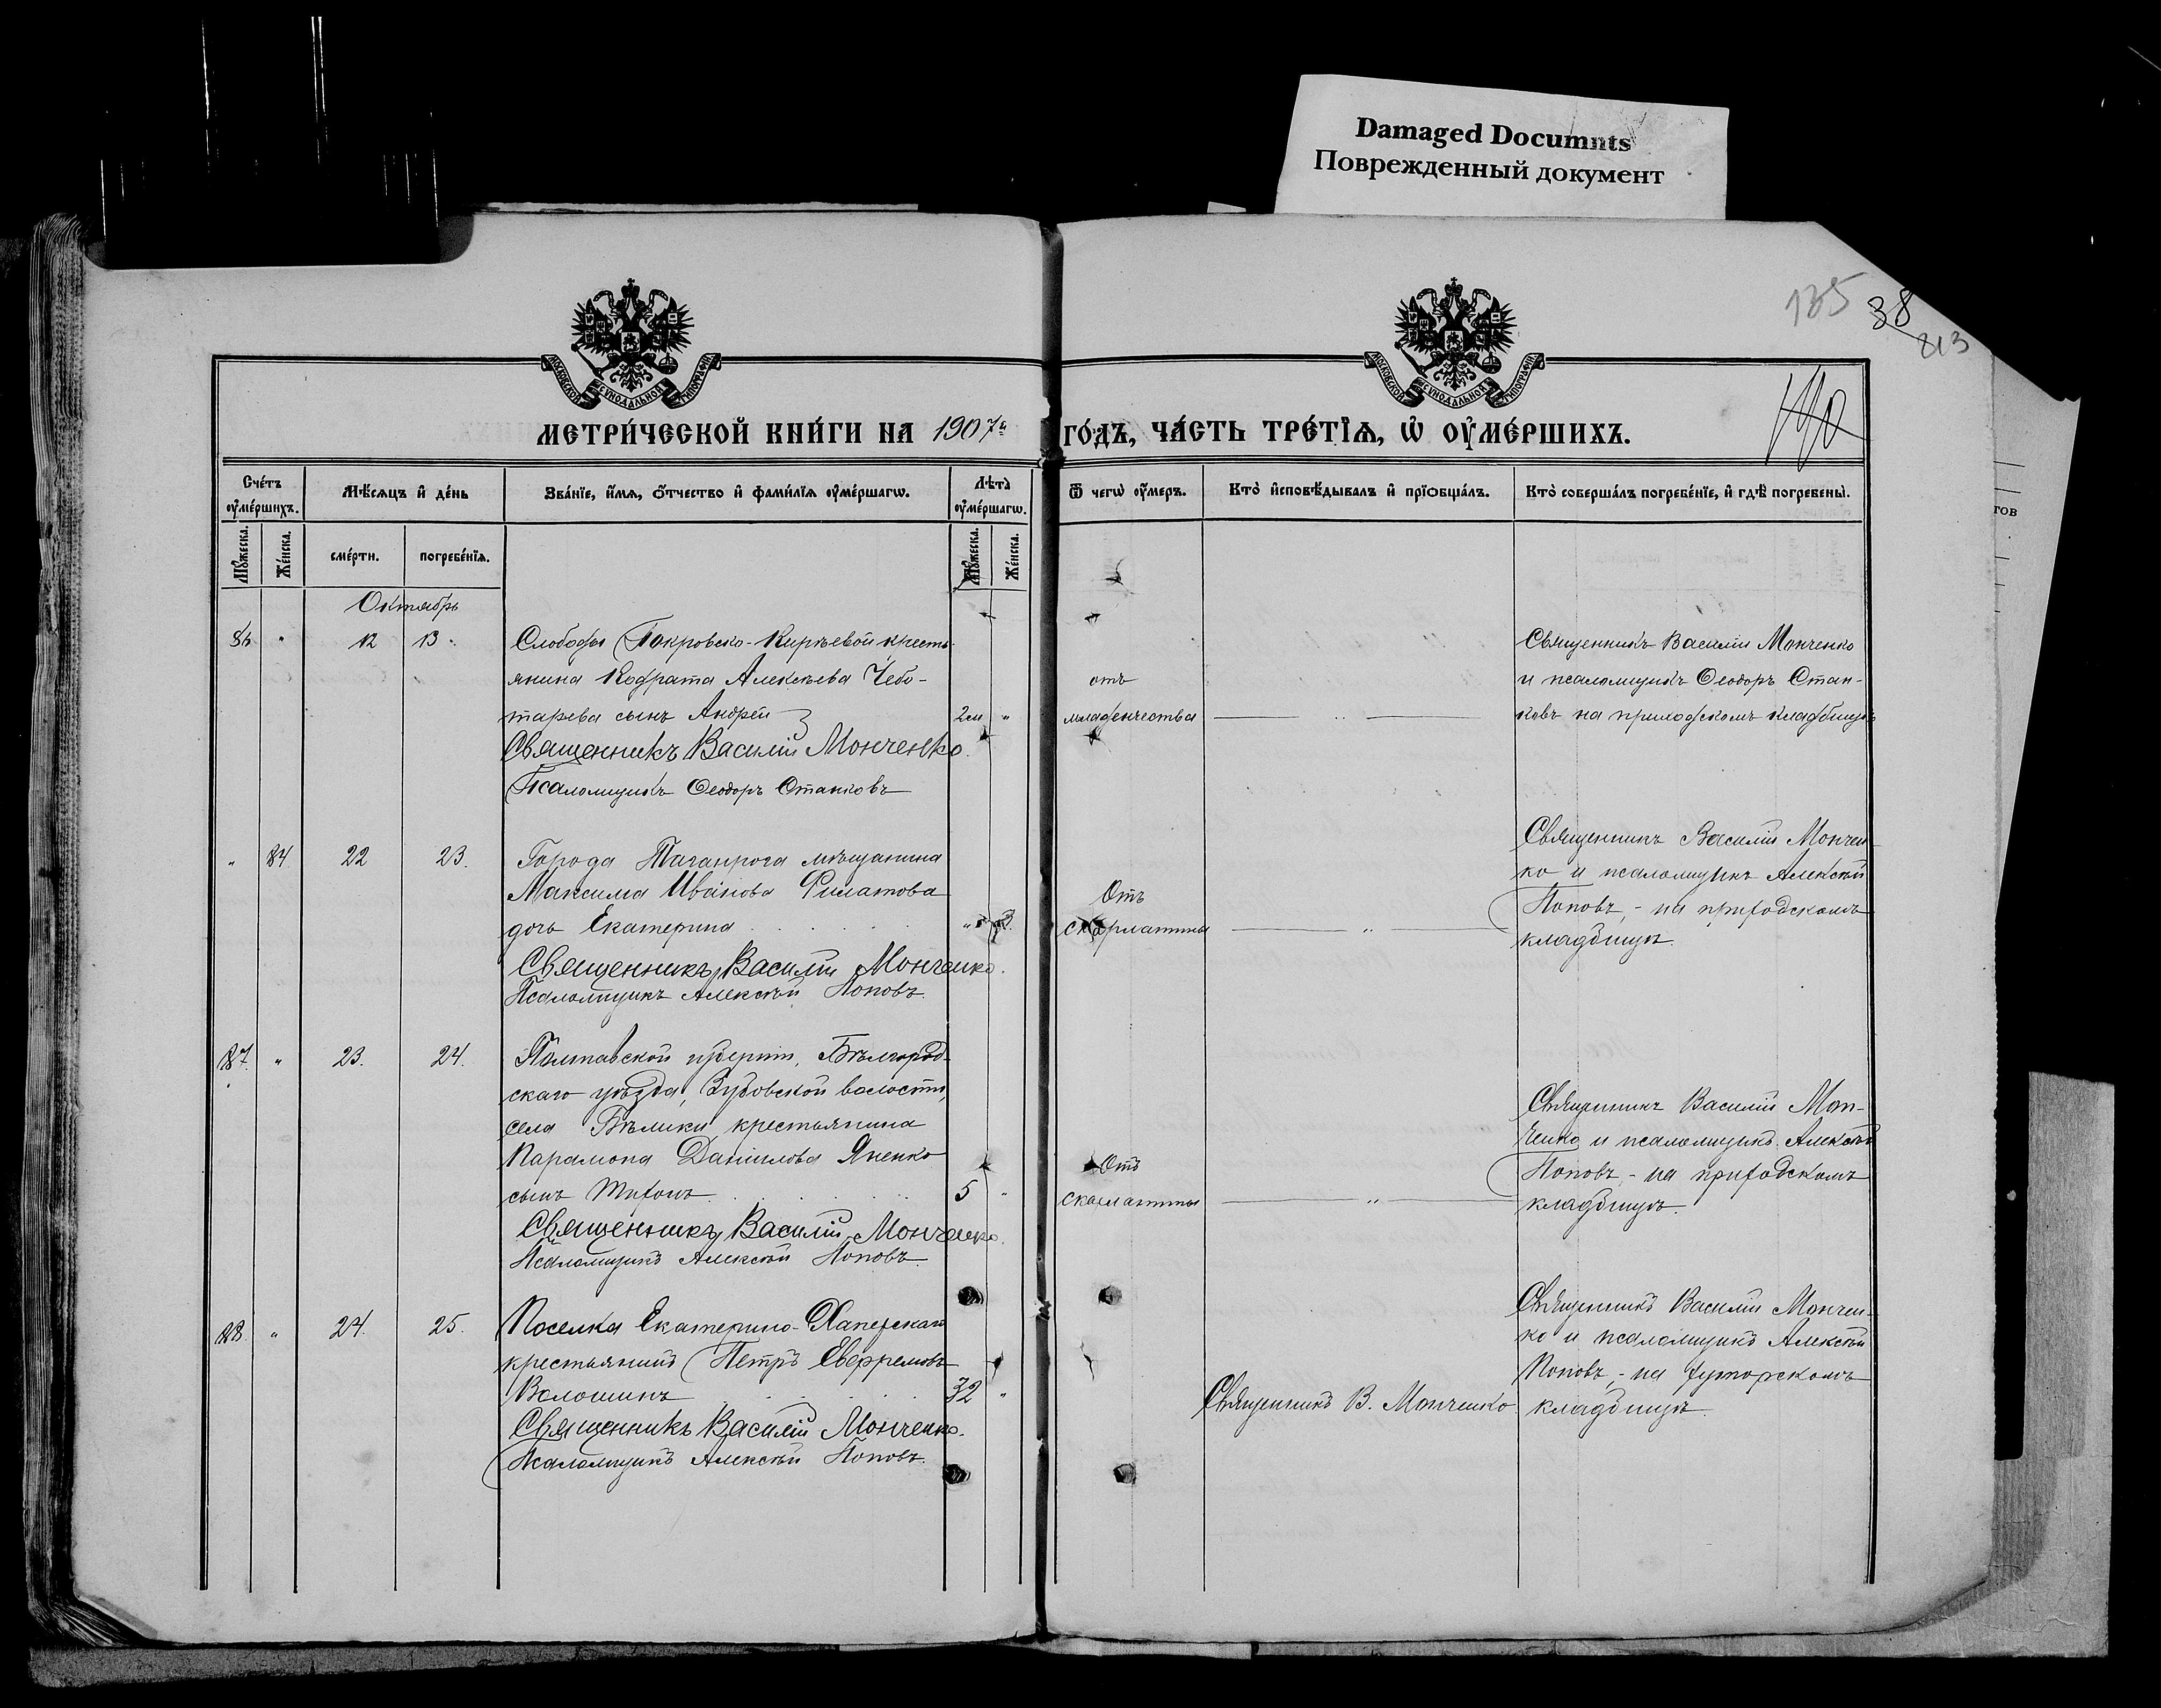 Damaged Documnts
Поврежденный документ
135
38
213
МОСКОВСКОЙ СѴНОДАЛЬНОЙ ТИПОГРАФІИ
МОСКОВСКОЙ СѴНОДАЛЬНОЙ ТИПОГРАФІИ
МЕТРИ́ЧЕСКОЙ КНИ́ГИ НА 1907й ГО́ДЪ, ЧА́СТЬ ТРЕ́ТІѦ, Ѡ҆ ОУ҆МЕ́РШИХЪ.
Сче́тъ оу҆ме́ршихъ.
Мѣ́сяцъ и҆ де́нь
Зва́нїе, и҆́мѧ, ѻ҆́тчество и҆ фами́лїѧ оу҆ме́ршагѡ.
Лѣ́та оу҆ме́ршагѡ.
Ѿ чегѡ̀ оу҆́меръ.
Кто̀ и҆сповѣ́дывалъ и҆ прїѡбща́лъ.
Кто̀ соверша́лъ погребе́нїе, и҆ гдѣ̀ погребены̀.
Мꙋ́жеска.
Же́нска.
сме́рти.
погребе́нїѧ.
Мꙋ́жеска.
Же́нска.
Октябрь
86 " 12 13
Слободы Покровско-Кирѣевой кресть-
янина Кодрата Алексѣева Чебо-
тарева сынъ Андрей 2м "
Священникъ Василій Монченко.
Псаломщикъ Ѳеодоръ Станковъ
отъ
младенчества — " —
Священникъ Василій Монченко
и псаломщикъ Ѳеодоръ Стан-
ковъ на приходскомъ кладбищѣ
" 84 22 23.
Города Таганрога мѣщанина
Максима Иванова Филатова
дочь Екатерина " 3.
Священникъ Василій Монченко.
Псаломщикъ Алексѣй Поповъ.
Отъ
скарлатины — " —
Священникъ Василій Мончен-
ко и псаломщикъ Алексѣй
Поповъ, - на приходскомъ
кладбищѣ.
87. " 23. 24.
Полтавской губерніи, Бѣлгород-
скаго уѣзда, Зубовской волости,
села Бѣлики крестьянина
Парамона Данилова Яненко
сынъ Тихонъ 5 "
Священникъ Василій Монченко.
Псаломщикъ Алексѣй Поповъ.
Отъ
скарлатины — " —
Священникъ Василій Мон-
ченко и псаломщикъ Алексѣй
Поповъ, - на приходскомъ
кладбищѣ.
88. " 24. 25.
Поселка Екатерино-Хаперскаго
крестьянинъ Петръ Евфремовъ
Волошинъ 32 "
Священникъ Василій Монченко.
Псаломщикъ Алексѣй Поповъ.
Священникъ В. Монченко.
Священникъ Василій Мончен-
ко и псаломщикъ Алексѣй
Поповъ, - на хуторскомъ
кладбищѣ.